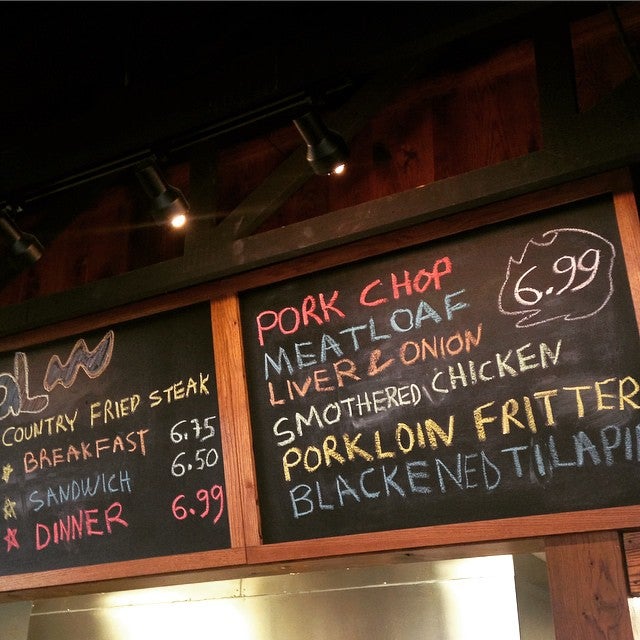 COUNTRY FRIED STEAK
BREAKFAST 6.75
SANDWICH 6.50
DINNER 6.99
PORK CHOP 6.99
MEATLOAF
LIVER & ONION
SMOTHERED CHICKEN
PORKLOIN FRITTER
BLACKENED TILAPI